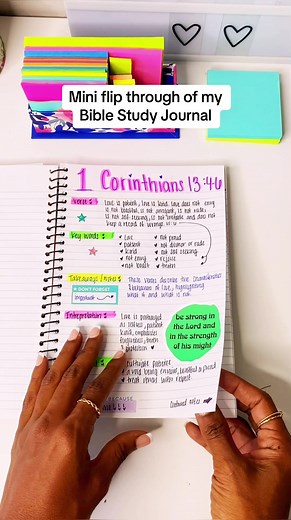 Mini flip through of my
Bible Study Journal
1 Corinthians 13:4-6
Verse:
Love is patient, love is kind. Love does not envy
is not boastful, is not arrogant, is not rude.
is not self-seeking, is not irritable and does not
keep a record of wrongs.
Key words:
love
patient
kind
not envy
not boast
not proud
not dishonor or rude
not self seeking
rejoice
truth
Takeaways / notes:
These verses describe the
of love, highlighting
what it and what is not.
DON'T FORGET
important
Interpretation:
Love is portrayed
as selfless, patient
kind, emphasizes
forgiveness, truth
& protection
be strong in
the Lord and
in the strength
of his might
cultivate patience
kind
treat others with respect.
BECAUSE
continued notes